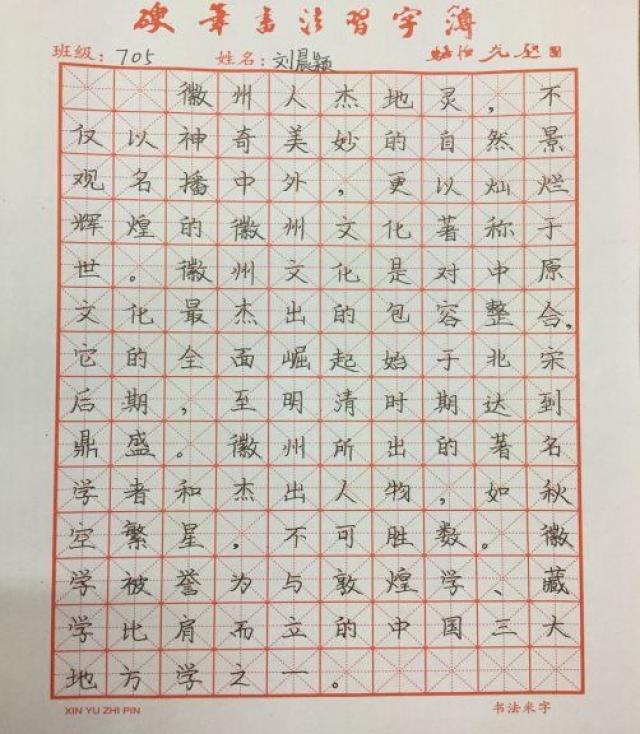 硬笔书法习字簿
班级：705 姓名：刘晨颖
徽州人杰地灵，不
仅以神奇美妙的自然景
观名播中外，更以灿烂
辉煌的徽州文化著称于
世。徽州文化是对中原
文化最杰出的包容整合，
它的全面崛起始于北宋
后期，至明清时期达到
鼎盛。徽州所出的著名
学者和杰出人物，如秋
空繁星，不可胜数。徽
学被誉为与敦煌学、藏
学比肩而立的中国三大
地方学之一。
XIN YU ZHI PIN 书法米字